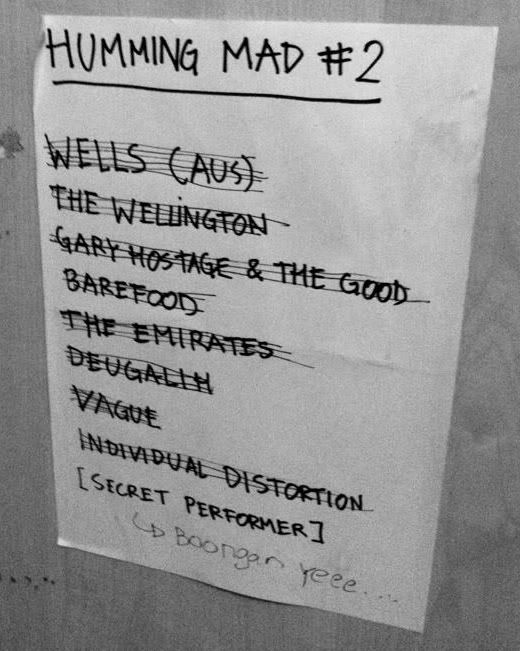 HUMMING MAD #2
WELLS (AUS)
THE WELLINGTON
GARY HOSTAGE & THE GOOD
BAREFOOD
THE EMIRATES
DEUGALIH
VAGUE
INDIVIDUAL DISTORTION
[SECRET PERFORMER]
↳ Boongan yeee....